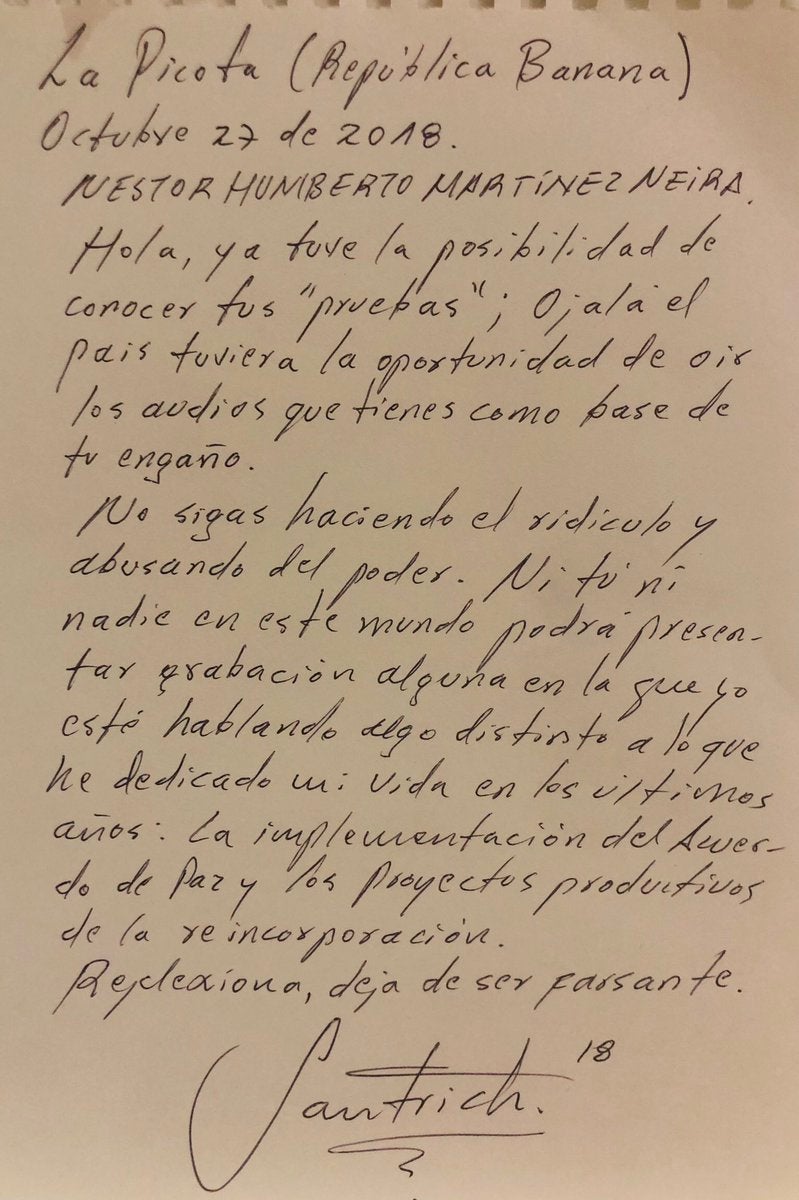 La Picota (República Banana)
Octubre 27 de 2018.
NESTOR HUMBERTO MARTÍNEZ NEIRA.
Hola, ya tuve la posibilidad de
conocer tus "pruebas"; Ojalá el
pais tuviera la oportunidad de oir
los audios que tienes como base de
tu engaño.
No sigas haciendo el ridiculo y
abusando del poder. Ni tú ni
nadie en este mundo podrá presen-
tar grabación alguna en la que yo
esté hablando algo distinto a lo que
he dedicado mi vida en los últimos
años: La implementación del Acuer-
do de Paz y los Proyectos productivos
de la reincorporación.
Reflexiona, deja de ser farsante.
Santrich. 18